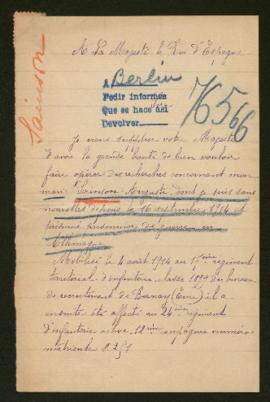 A Sa Majesté le Roi d'Espagne
Sainson
A Berlin
Pedir informes
Que se hace así
Devolver
76566
Je viens supplier votre Majesté
d'avoir la grande bonté de bien vouloir
faire opérer des recherches concernant mon
mari Sainson Auguste dont je suis sans
nouvelles depuis le 16 septembre 1914 et
présumé prisonnier de guerre en
Allemagne
Mobilisé le 4 août 1914 au 17ème régiment
territorial d'infanterie classe du bureau
de recrutement de Bernay (Eure) il a
ensuite été affecté au 24ème régiment
d'infanterie active, compagnie numéro
matricule